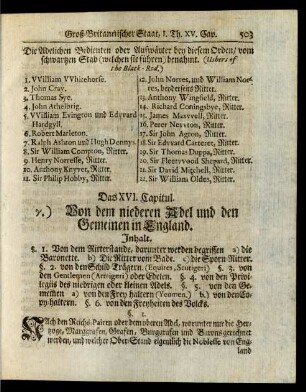 Groß-Britannischer Staat, I. Th. XV. Cap. 503
Die Adelichen Bedienten oder Aufwärter bey diesem Orden/ vom
schwartzen Stab (welchen sie führen) benahmt. (Ushers of
the Black-Rod.)
1. VVilliam VVhitehorse.
2. John Cray.
3. Thomas Sye.
4. John Athelbrig.
5. VVilliam Evington und Edvvard
Hardgyll.
6. Robert Marleton.
7. Ralph Ashton und Hugh Dennys.
8. Sir William Compton, Ritter.
9. Henry Norresse, Ritter.
10. Anthony Knyvet, Ritter.
11. Sir Philip Hobby, Ritter.
12. John Norres, und William Norres,
beyderseits Ritter.
13. Anthony Wingfield, Ritter.
14. Richard Coningsbye, Ritter.
15. James Maxvvell, Ritter.
16. Peter Nevvton, Ritter.
17. Sir John Agton, Ritter.
18. Sir Edvvard Carterer, Ritter.
19. Sir Thomas Duppa, Ritter.
20. Sir Fleetvvood Shepard, Ritter.
21. Sir David Mitchell, Ritter.
22. Sir William Oldes, Ritter.
Das XVI. Capitul.
Von dem niederen Adel und den
Gemeinen in England.
Inhalt.
§. 1. Von dem Ritterstande, darunter werden begriffen a) die
Baronette. b) Die Ritter vom Bade. c) die Sporn-Ritter.
§. 2. von den Schild-Trägern (Equires, Scutigeri) §. 3. von
den Gentlemen (Armigeri) oder Edelen. §. 4. von den Privilegiis
des niedrigen oder kleinen Adels. §. 5. von den Gemeinen
a) von den Freyhaltern (Yeomen.) b) von den Copyhaltern.
§. 6. von den Freyheiten des Volcks.
§. 1.
Nach den Reichs-Pairen oder dem obern Adel, worunter nur die Hertzoge,
Marggrafen, Grafen, Burggrafen und Barons gerechnet
werden, und welcher Ober-Stand eigentlich die Noblesse von Eng-
land